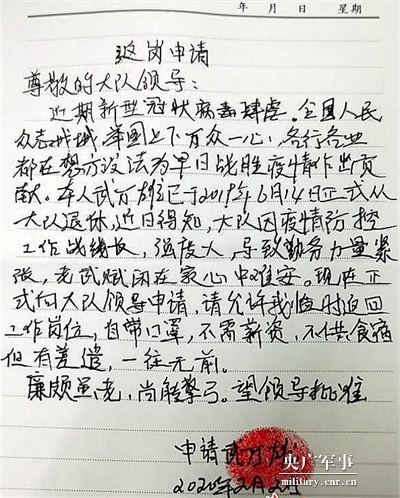 年 月 日 星期
返岗申请
尊敬的大队领导：
近期新型冠状病毒肆虐。全国人民
众志成城，举国上下万众一心，各行各业
都在想方设法为早日战胜疫情作出贡
献。本人武万雄已于2019年6月14日正式从
大队退休，近日得知，大队因疫情防控
工作战线长，强度大，导致勤务力量紧
张，老武赋闲在家心中难安。现在正
式向大队领导申请，请允许我临时返回
工作岗位，自带口罩，不需薪资，不供食宿
但有差遣，一往无前。
廉颇虽老，尚能擎弓。望领导批准
申请 武万雄
2020年2月
央广军事
military.cnr.cn